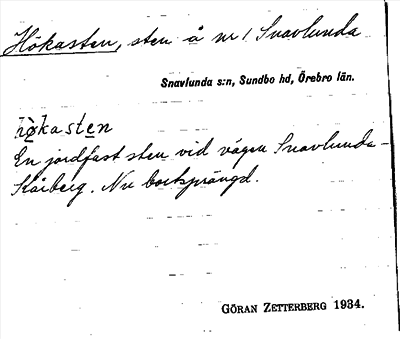 Hökasten, sten å nr 1 Snavlunda
Snavlunda s:n, Sundbo hd, Örebro län.
hø̀kasten
En jordfast sten vid vägen Snavlunda-
Kårberg. Nu bortsprängd.
GÖRAN ZETTERBERG 1934.